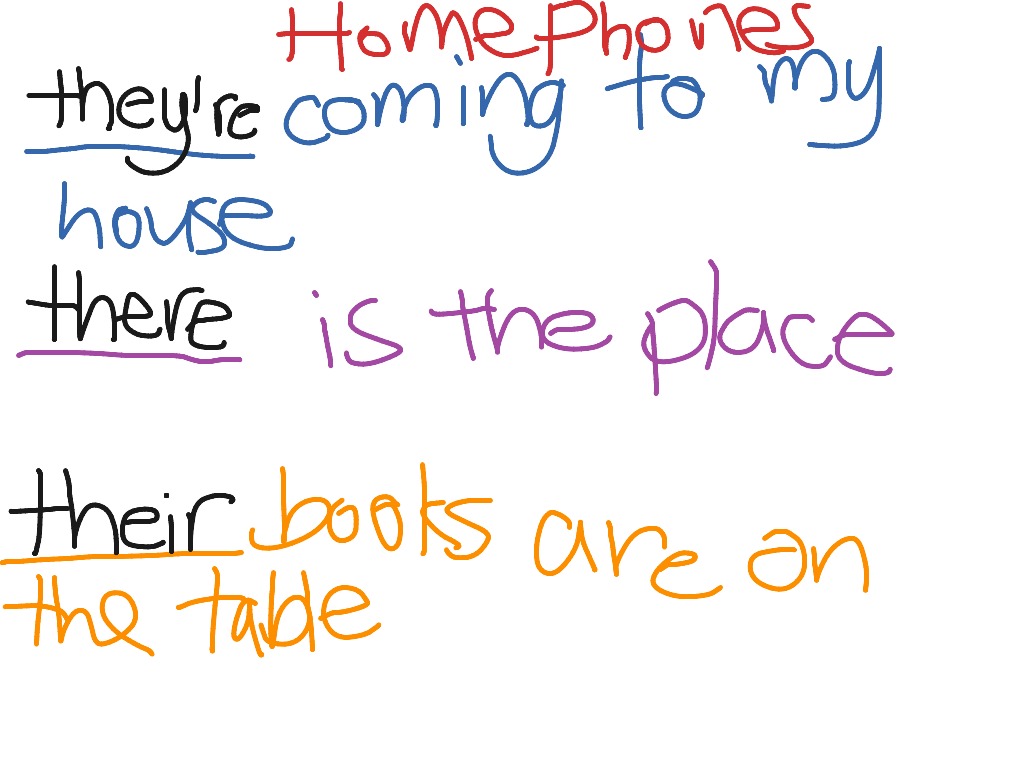 HomePhones
they're coming to my
house
there is the place
their books are on
the table